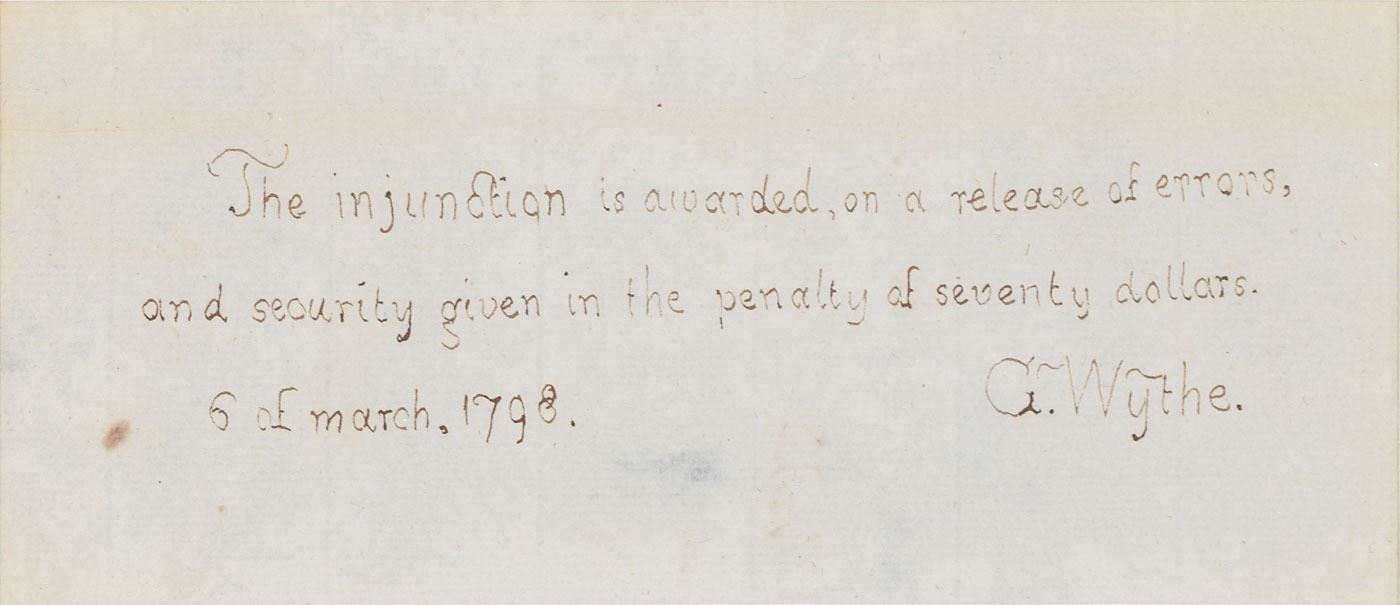 The injunction is awarded, on a release of errors,
and security given in the penalty of seventy dollars.
6 of march, 1798.
G. Wythe.